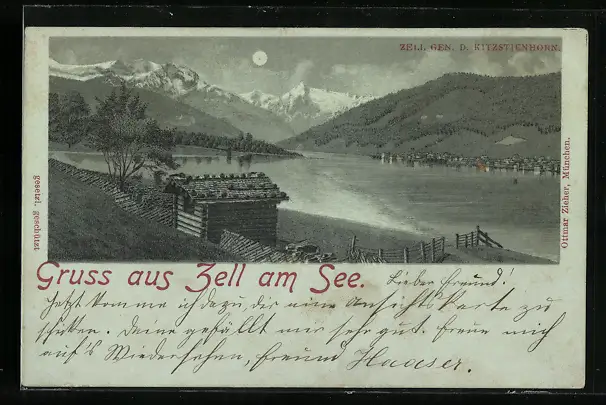 ZELL GEN. D. KITZSTIENHORN.
gesetzl. geschützt
Ottmar Zieher, München.
Gruss aus Zell am See.
Lieber Freund!
Jetzt komme ich dazu, dir eine Ansichtskarte zu
schicken. Deine gefällt mir sehr gut. Freue mich
auf's Wiedersehen, Freund Haaser.